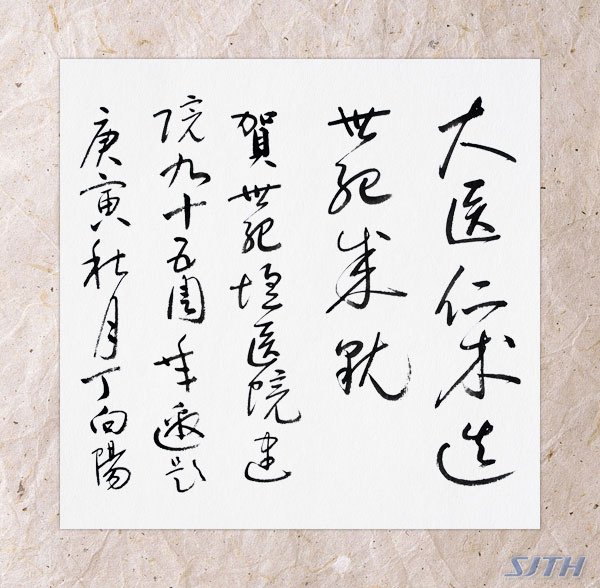 大医仁术造
世纪成就
賀世纪壇医院建
院九十五周年题
庚寅秋月丁向陽
SJTH